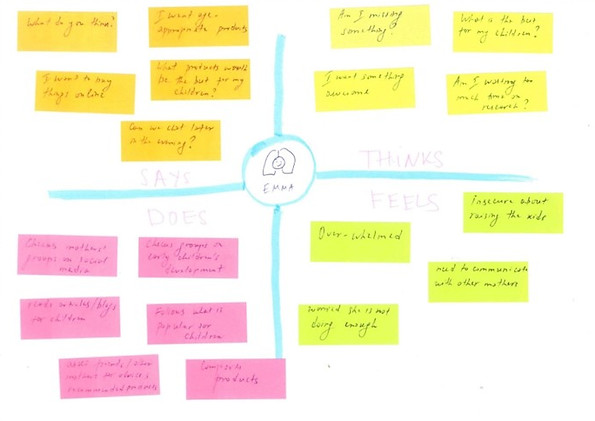 What do you think?
I want age-
appropriate products
I want to buy
things online
What products would
be the best for my
children?
Can we chat later
in the evening?
Am I missing
something?
What is the best
for my children?
I want something
awesome
Am I wasting too
much time on
research?
SAYS
THINKS
EMMA
DOES
FEELS
Checks mothers'
groups on social
media
Checks groups on
early children's
development
reads articles/blogs
for children
Follows what is
popular for
children
asks friends/other
mothers for advice &
recommended products
Compares
products
Insecure about
raising the kids
Over-whelmed
need to communicate
with other mothers
worried she is not
doing enough